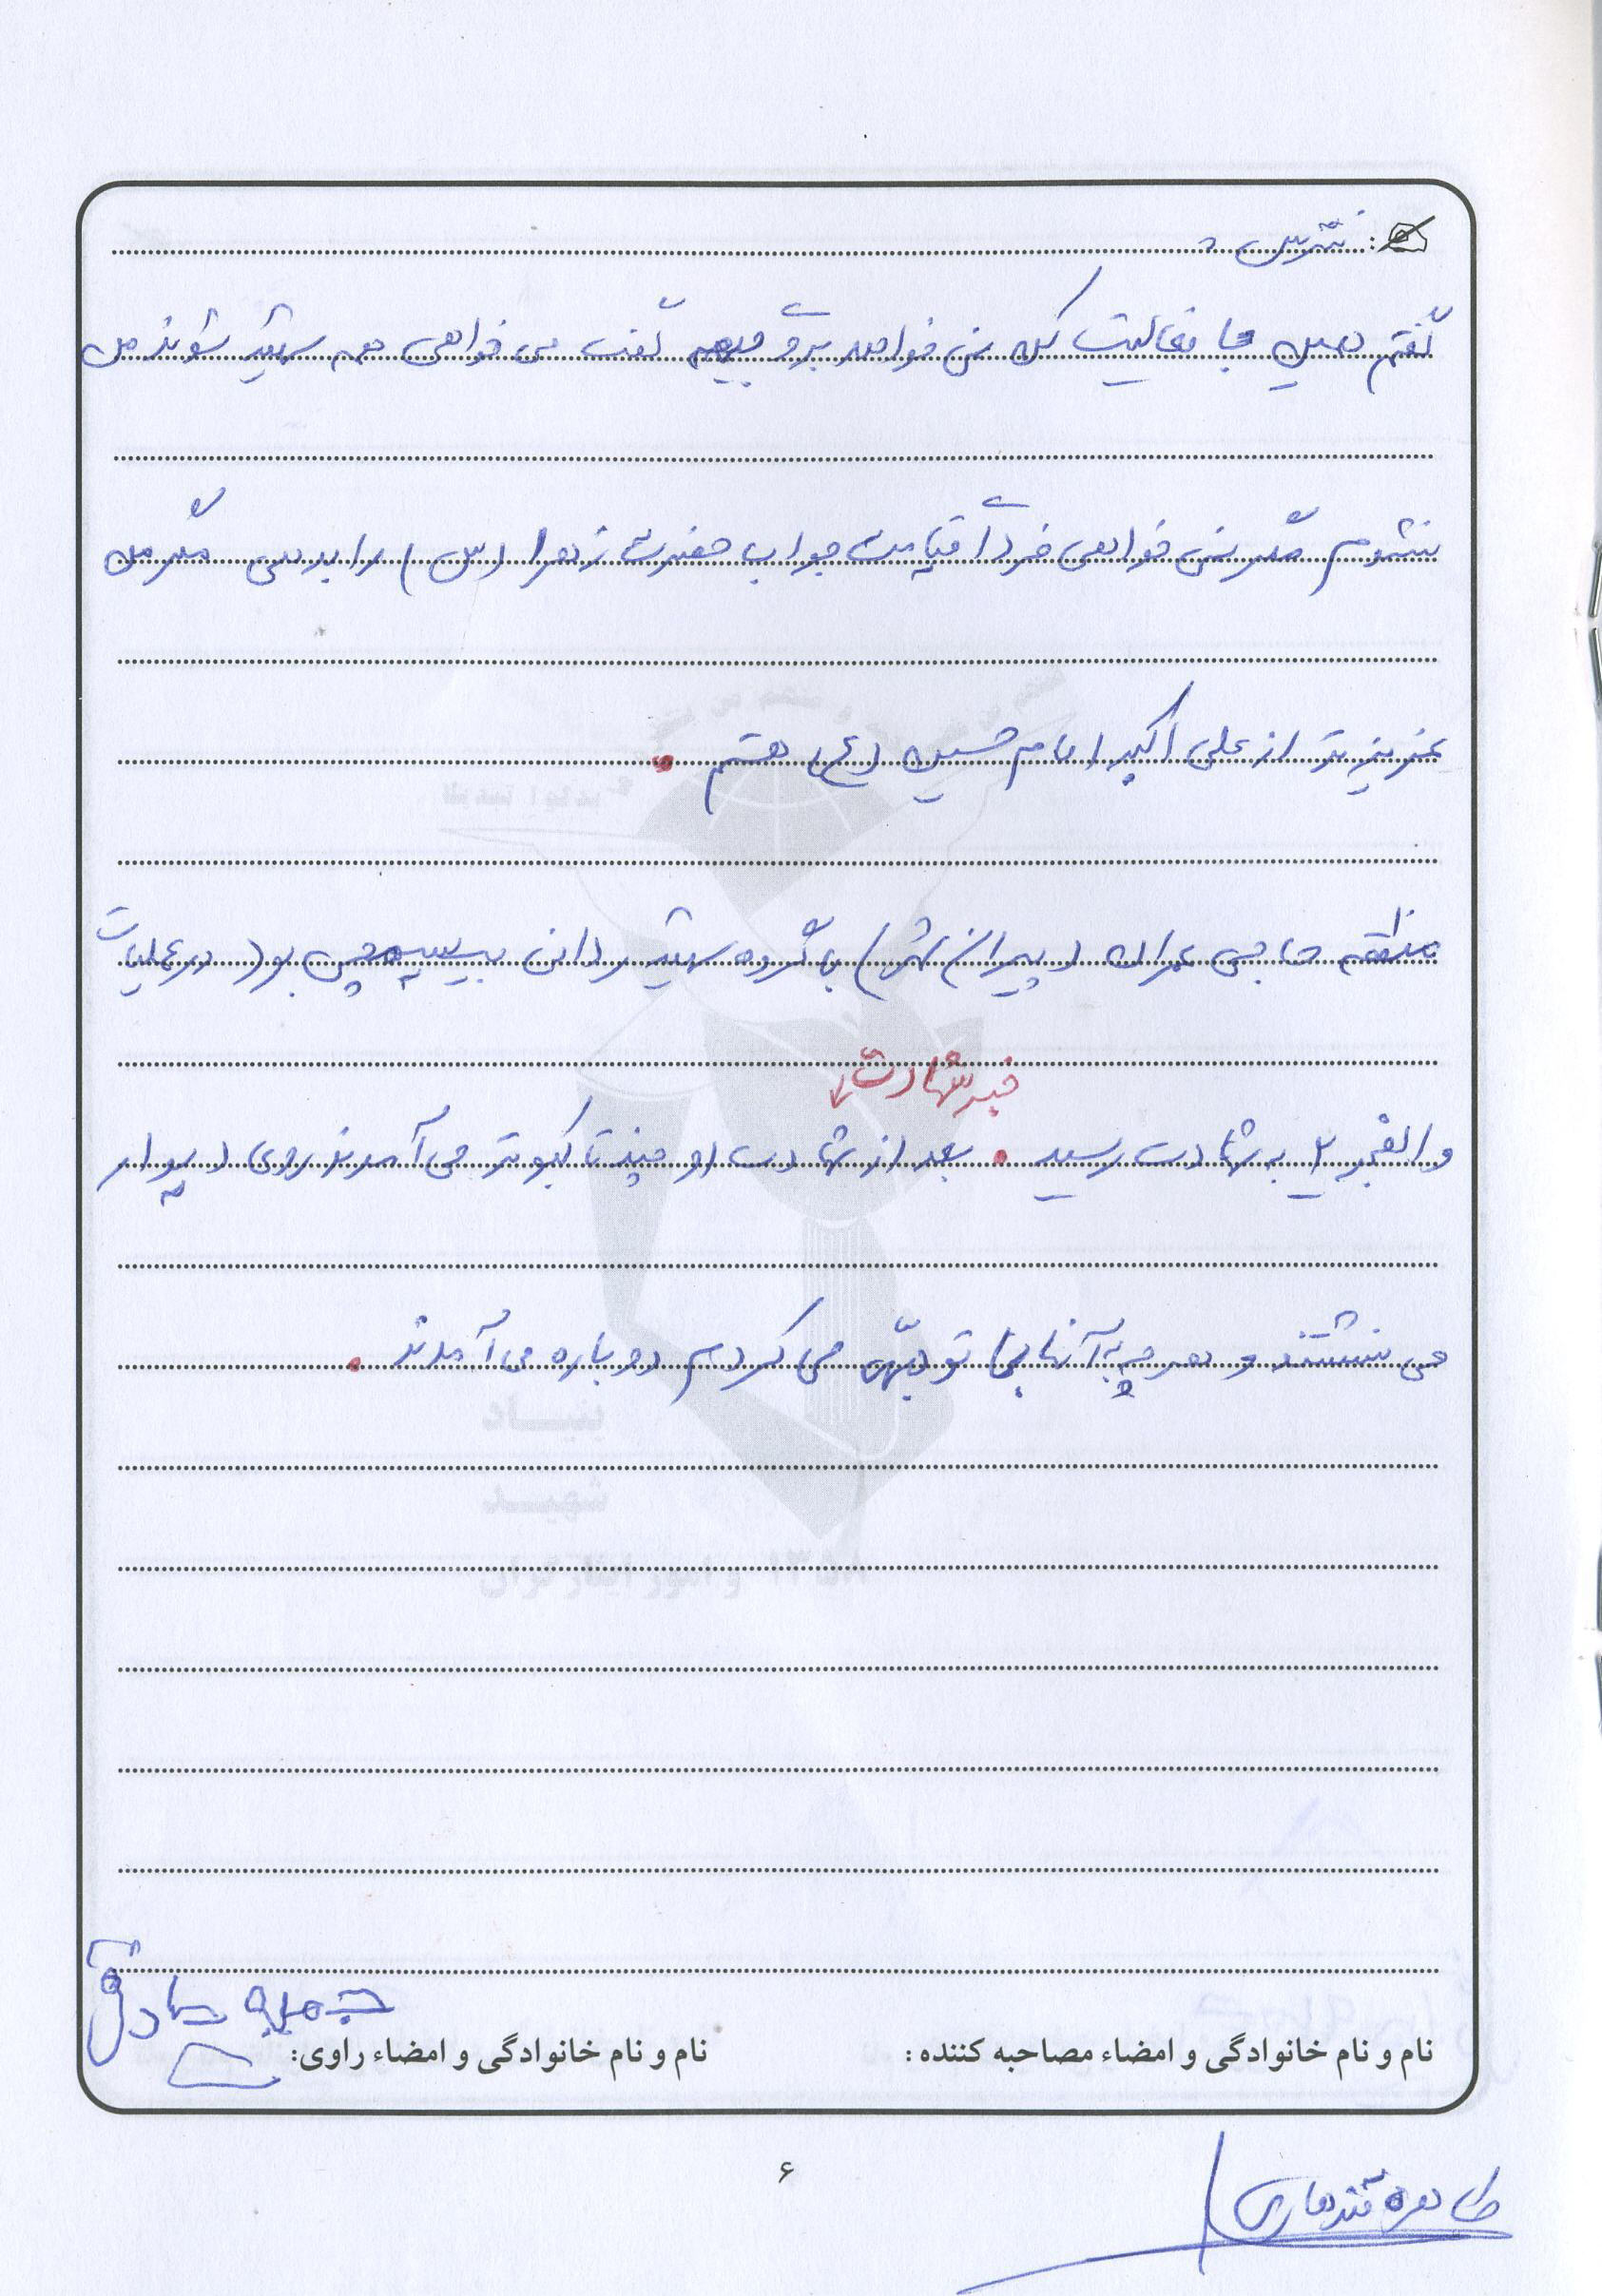 : نترس .
گفتم همین جا فعالیت کن نمی خواهد بروی جبهه گفت می خواهی همه شهید شوند من
نشوم مگر نمی خواهی فردا قیامت جواب حضرت زهرا (س) را بدهی مگر من
عزیزتر از علی اکبر امام حسین (ع) هستم .
منطقه حاجی عمران (پیرانشهر) با گروه شهید بیسیم چی بود در عملیات
خبر شهادت
والفجر ۲ به شهادت رسید . بعد از شهادت او چند تا کبوتر می آمدند روی دیوار
می نشستند و هر چه به آنها بی توجهی می کردم دوباره می آمدند .
بنیاد
شهید
و امور ایثارگران
جمیله صادقی
نام و نام خانوادگی و امضاء مصاحبه کننده : نام و نام خانوادگی و امضاء راوی:
۶
طاهره قندهاری